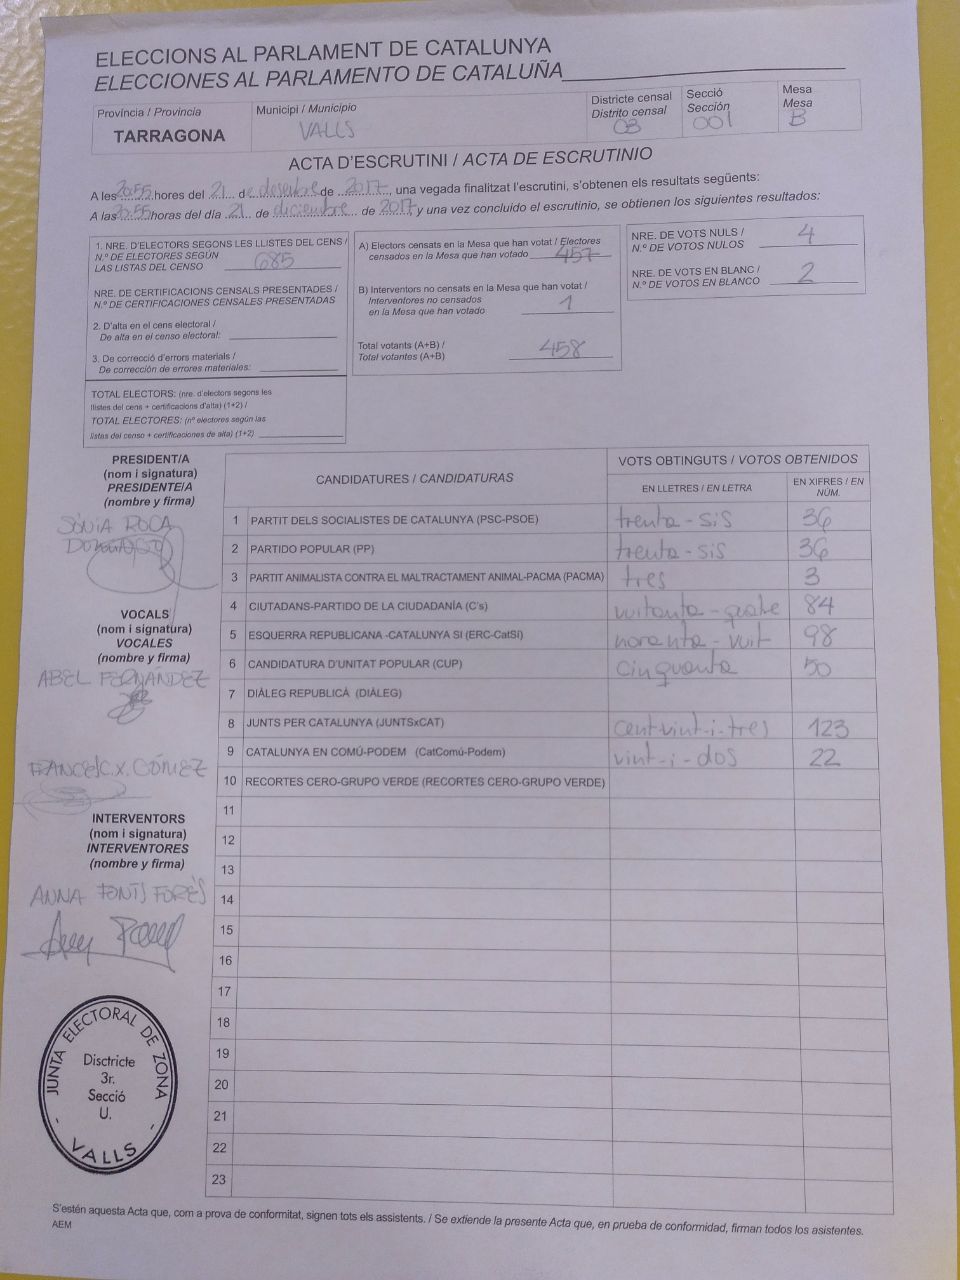 ELECCIONS AL PARLAMENT DE CATALUNYA
ELECCIONES AL PARLAMENTO DE CATALUÑA
Província / Provincia
TARRAGONA
Municipi / Municipio
VALLS
Districte censal
Distrito censal
03
Secció
Sección
001
Mesa
Mesa
B
ACTA D'ESCRUTINI / ACTA DE ESCRUTINIO
A les 20:55 hores del 21 de desembre de 2017, una vegada finalitzat l'escrutini, s'obtenen els resultats següents:
A las 20:55 horas del día 21 de diciembre de 2017 y una vez concluido el escrutinio, se obtienen los siguientes resultados:
1. NRE. D'ELECTORS SEGONS LES LLISTES DEL CENS /
N.º DE ELECTORES SEGÚN
LAS LISTAS DEL CENSO 685
NRE. DE CERTIFICACIONS CENSALS PRESENTADES /
N.º DE CERTIFICACIONES CENSALES PRESENTADAS
2. D'alta en el cens electoral /
De alta en el censo electoral:
3. De correcció d'errors materials /
De corrección de errores materiales:
TOTAL ELECTORS: (nre. d'electors segons les
llistes del cens + certificacions d'alta) (1+2) /
TOTAL ELECTORES: (nº electores según las
listas del censo + certificaciones de alta) (1+2)
A) Electors censats en la Mesa que han votat / Electores
censados en la Mesa que han votado 457
B) Interventors no censats en la Mesa que han votat /
Interventores no censados
en la Mesa que han votado 1
Total votants (A+B) /
Total votantes (A+B) 458
NRE. DE VOTS NULS /
N.º DE VOTOS NULOS 4
NRE. DE VOTS EN BLANC /
N.º DE VOTOS EN BLANCO 2
PRESIDENT/A
(nom i signatura)
PRESIDENTE/A
(nombre y firma)
SÒNIA ROCA
VOCALS
(nom i signatura)
VOCALES
(nombre y firma)
ABEL FERNÁNDEZ
FRANCESC X. GÓMEZ
INTERVENTORS
(nom i signatura)
INTERVENTORES
(nombre y firma)
ANNA FONTS FORÈS
CANDIDATURES / CANDIDATURAS
VOTS OBTINGUTS / VOTOS OBTENIDOS
EN LLETRES / EN LETRA
EN XIFRES / EN NÚM.
1 PARTIT DELS SOCIALISTES DE CATALUNYA (PSC-PSOE) trenta-sis 36
2 PARTIDO POPULAR (PP) trenta-sis 36
3 PARTIT ANIMALISTA CONTRA EL MALTRACTAMENT ANIMAL-PACMA (PACMA) tres 3
4 CIUTADANS-PARTIDO DE LA CIUDADANÍA (C's) vuitanta-quatre 84
5 ESQUERRA REPUBLICANA -CATALUNYA SI (ERC-CatSI) noranta-vuit 98
6 CANDIDATURA D'UNITAT POPULAR (CUP) cinquanta 50
7 DIÀLEG REPUBLICÀ (DIÀLEG)
8 JUNTS PER CATALUNYA (JUNTSxCAT) cent vint-i-tres 123
9 CATALUNYA EN COMÚ-PODEM (CatComú-Podem) vint-i-dos 22
10 RECORTES CERO-GRUPO VERDE (RECORTES CERO-GRUPO VERDE)
11
12
13
14
15
16
17
18
19
20
21
22
23
JUNTA ELECTORAL DE ZONA
Disctricte
3r.
Secció
U.
- VALLS -
S'estén aquesta Acta que, com a prova de conformitat, signen tots els assistents. / Se extiende la presente Acta que, en prueba de conformidad, firman todos los asistentes.
AEM